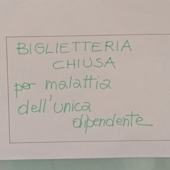 BIGLIETTERIA
CHIUSA
per malattia
dell'unica
dipendente